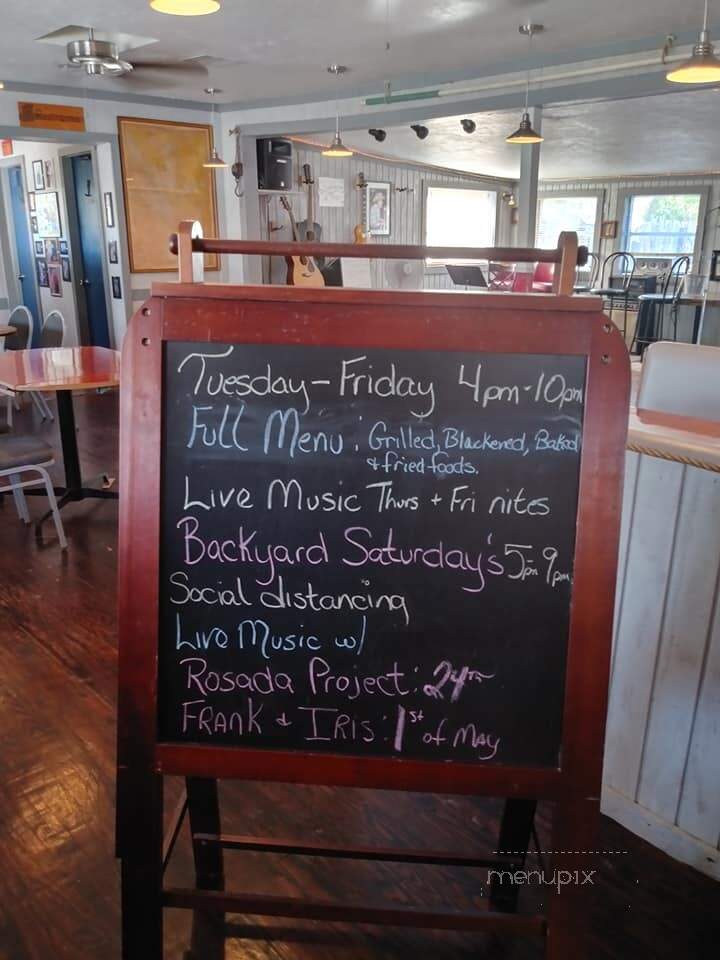 Tuesday-Friday 4pm-10pm
Full Menu: Grilled, Blackened, Baked
& fried foods.
Live Music Thurs + Fri nites
Backyard Saturday's 5pm-9pm
Social distancing
Live Music w/
Rosada Project: 24th
FRANK & IRIS: 1st of MAY
menupix